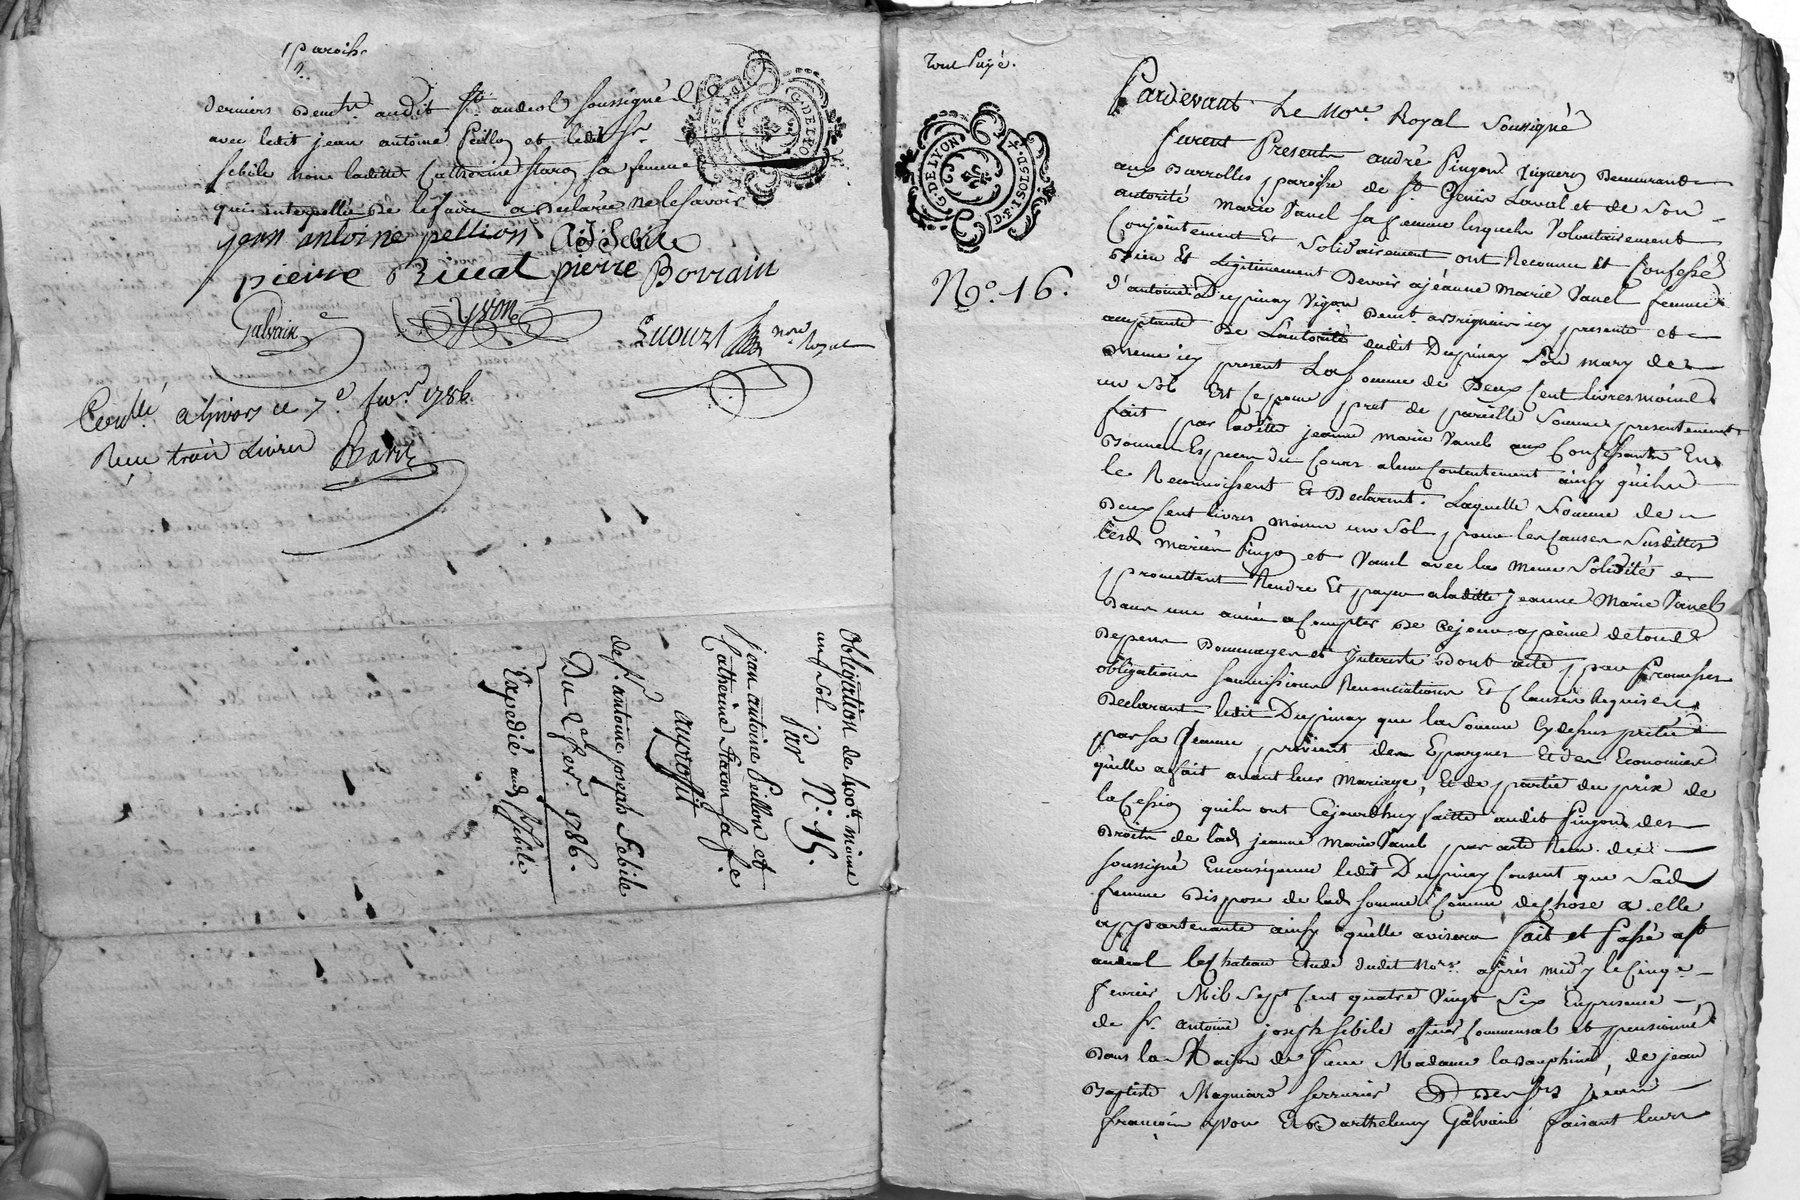 paroisse
derniers demt. audit St. andéol soussigné
avec ledit jean antoine Peillon et ledit Sr
Sebile non laditte Catherine staron sa femme
qui interpellée de le faire a déclaré ne le savoir
jean antoine pellion AJSebile
pierre Rivat pierre Borrain
Galvain yvon Lucourt nore Royal
Con.llé a Givors ce 7e. fevr. 1786
Reçu trois Livres
Obligation de 400tt moins
un sol
Par N. 15.
jean antoine Peillon et
Catherine staron sa fe.
au profit
de sr. antoine joseph Sebile
Du 2e fer. 1786.
Expedié aud Sr Sebile
Tout Payé.
G. DE LYON
D.T. 3 SOLS 4 D
N.o 16.
Pardevant Le Nore. Royal Soussigné
furent Presents andré Pingon Vigneron Demeurant
aux Barrolles paroisse de St. Genis Laval et de son
autorité marie Vanel sa femme lesquels Volontairement
Conjointement Et Solidairement ont Reconnu Et Confessé
Bien Et Légitimement Devoir a jeanne Marie Vanel femme
d'antoine Dupinay Vigon Demt. a jcy presente et
acceptante De L'autorité dudit Dupinay Son mary de
meme icy present La somme de Deux Cent livres moins
un Sol Et ce pour pret de pareille Somme presentement
fait par laditte jeanne marie Vanel aux Confessants En
Bonnes Especes du Cours a leur Contentement ainsy qu'ils
le Reconnoissent Et Declarent. Laquelle Somme de
Deux Cent livres moins un Sol pour les Causes Susdittes
Lesd. Mariés Pingon et Vanel avec la meme Solidité
promettent Rendre Et payer a laditte jeanne Marie Vanel
Dans une année a Compter de Cejour a peine de tous
Depens Dommages et Interets Dont acte par Promesses
obligations soumissions Renonciations Et Clauses Requises
Declarant ledit Dupinay que la Somme Cydessus pretée
par sa femme provient des Epargnes Et des Economies
qu'elle a fait avant leur Mariage, Et de partie du prix de
la Cession qu'ils ont Cejourdhuy faitte audit Pingon des
Droits de lad. jeanne Marie Vanel par acte Reçu du
soussigné En conséquence ledit Dupinay Consent que Sad
femme Dispose de lad. somme Comme de Chose a elle
appartenante ainsy qu'elle avisera fait et Passé a St
andéol le Chateau Etude dudit Nore. après midy le Cinq
fevrier Mil Sept Cent quatre Vingt Six En presence
de Sr. antoine joseph Sebile officier Commensal et pensionné
Dans la Maison de feue Madame la Dauphine, de jean
Baptiste Magniard Serrurier D de jean
françois yvon Et Barthelemy Galvain faisant leurs